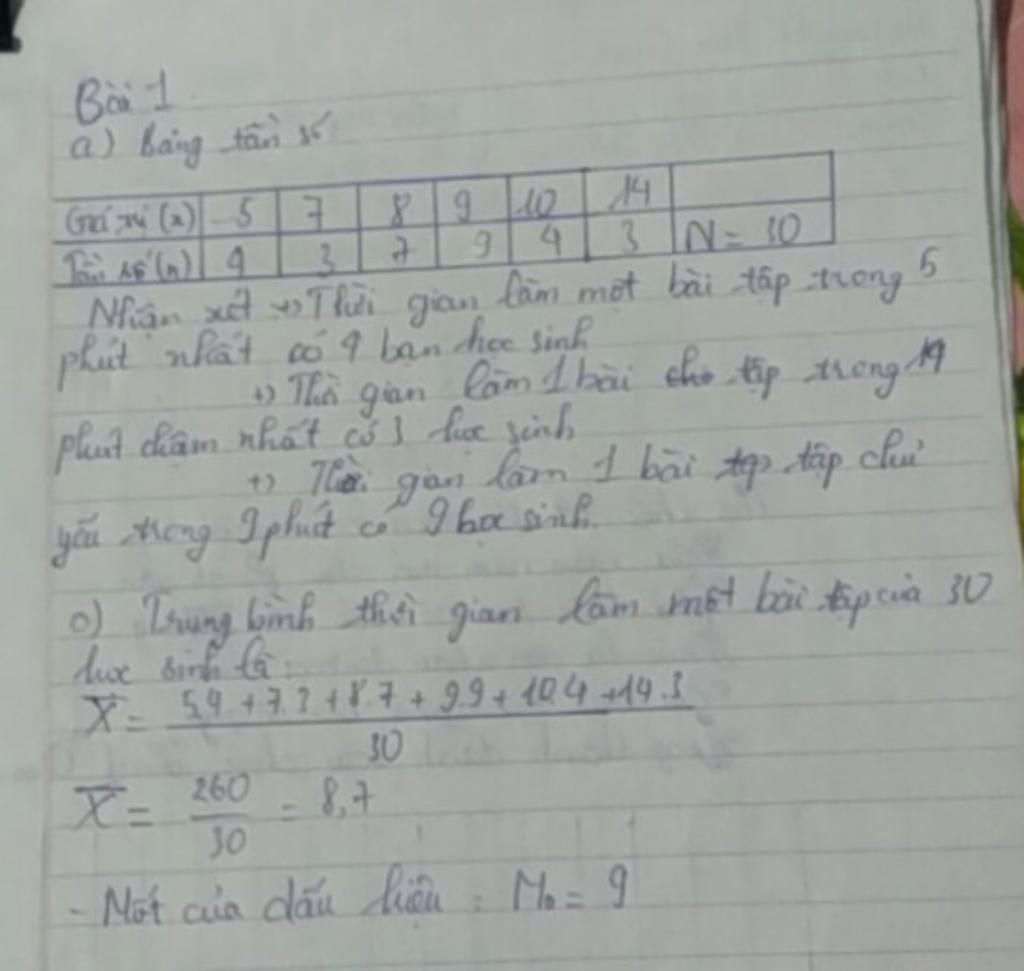 Bài 1
a) Bảng tần số
Giá trị (x) 5 7 8 9 10 14
Tần số (n) 4 3 7 9 4 3 N = 30
Nhận xét +) Thời gian làm một bài tập trong 5
phút nhất có 4 bạn học sinh
+) Thời gian làm 1 bài tập trong 14
phút chậm nhất có 3 học sinh
+) Thời gian làm 1 bài tập chủ
yếu trong 9 phút có 9 học sinh
c) Trung bình thời gian làm một bài tập của 30
học sinh là:
X̄ = 5.4 + 7.3 + 8.7 + 9.9 + 10.4 + 14.3
30
X̄ = 260/30 = 8,7
- Mốt của dấu hiệu : M₀ = 9